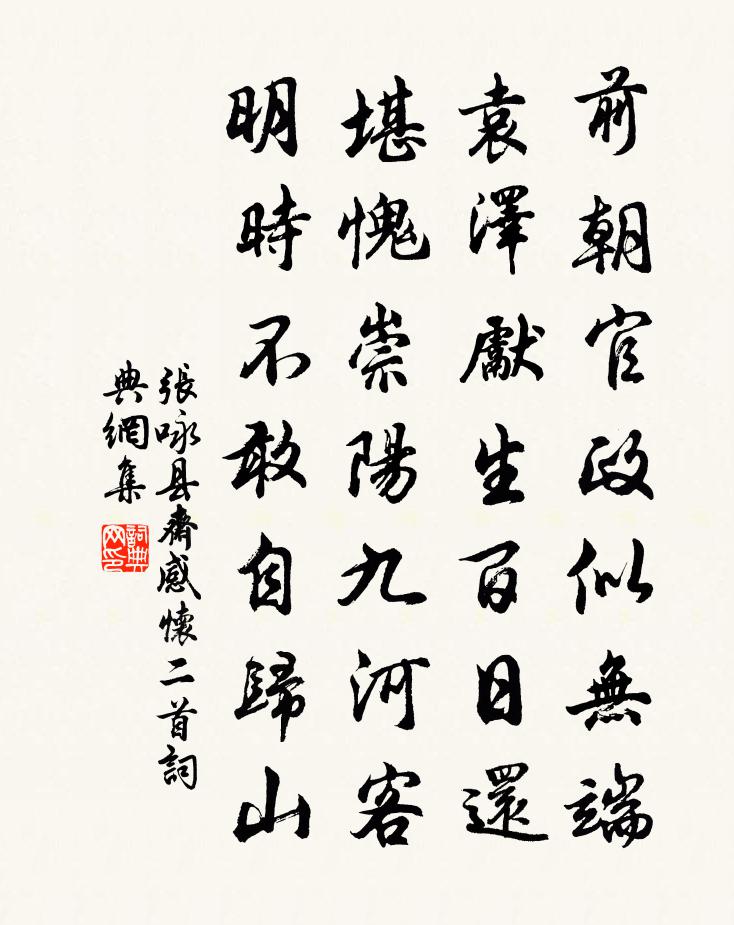 前朝官政似無端
袁澤獻生百日還
堪愧崇陽九河客
明時不敢自歸山
張咏县齋感懷二首詞
典網集
詞典
网印